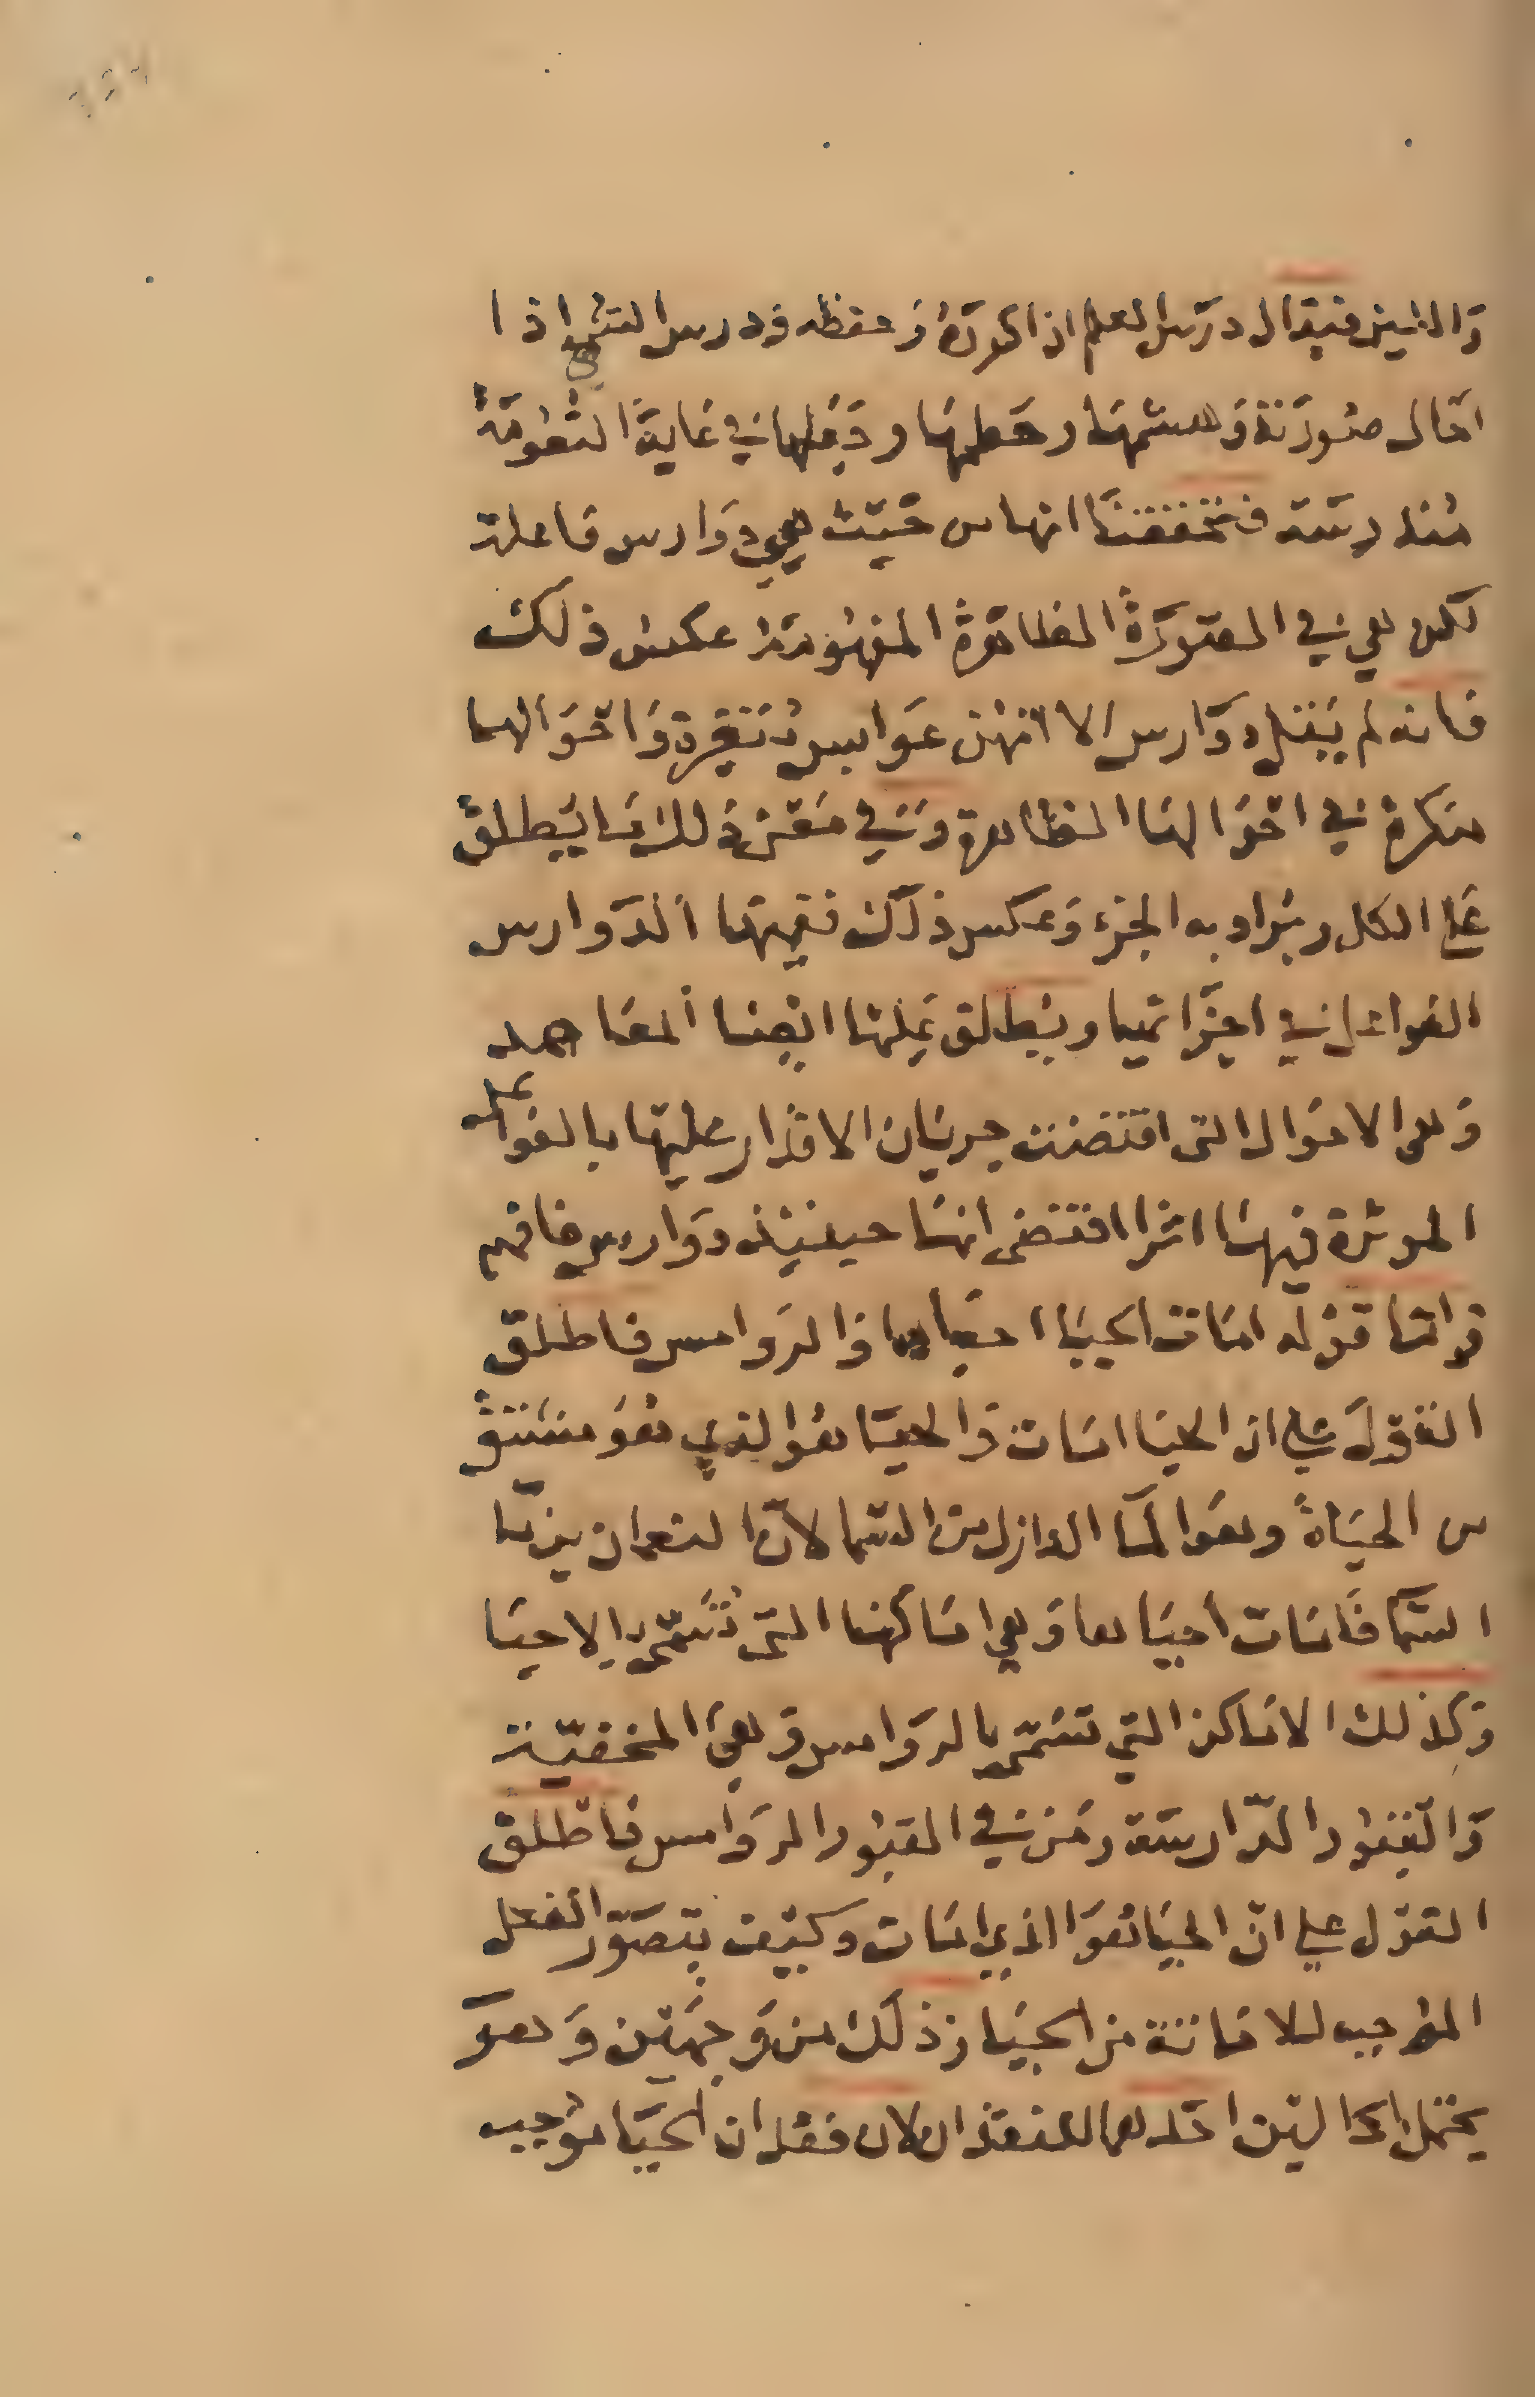 والليين فيقال درس العلم اذا كرره وحفظه ودرس الشي اذا
احال صورته وهشمها وحطمها وجعلها في غاية النعومة
مندرسة فتحققنا انها من حيث هي دوارس فاعلة
لكن هي في الصورة الظاهرة المفهومة عكس ذلك
فانه لم يقل دوارس الا انهن عوابس متغيرة واحوالها
منكرة في احوالها الظاهرة وفي ذلك ما يطلق
على الكل ويراد به الجزء وعكس ذلك ففيها الدوارس
الفواعل في اجزائها ويطلق عليها ايضا المعاهد
وهي الاحوال التي اقتضت جريان الاقدار عليها بالفواعل
الموثرة فيها اثرا اقتضى انها حينيذ دوارس فافهم
واما قوله امات الحيا احياها والروامس فاطلق
القول على ان الحيا امات والحيا هو الذي هو مشتق
من الحياة وهو الما النازل من السما لان النعمان بن ما
السما فامات احياها وهي اماكنها التي تسمى بالاحيا
وكذلك الاماكن التي تسمى بالروامس وهي المخفية
والقبور الدارسة ومن في القبور الروامس فاطلق
القول على ان الحيا هو الذي امات وكيف يتصور الفعل
الموجب للاماتة من الحيا وذلك من وجهين وهو
يحتمل الحالين احدهما الفقدان لان فقدان الحيا موجب